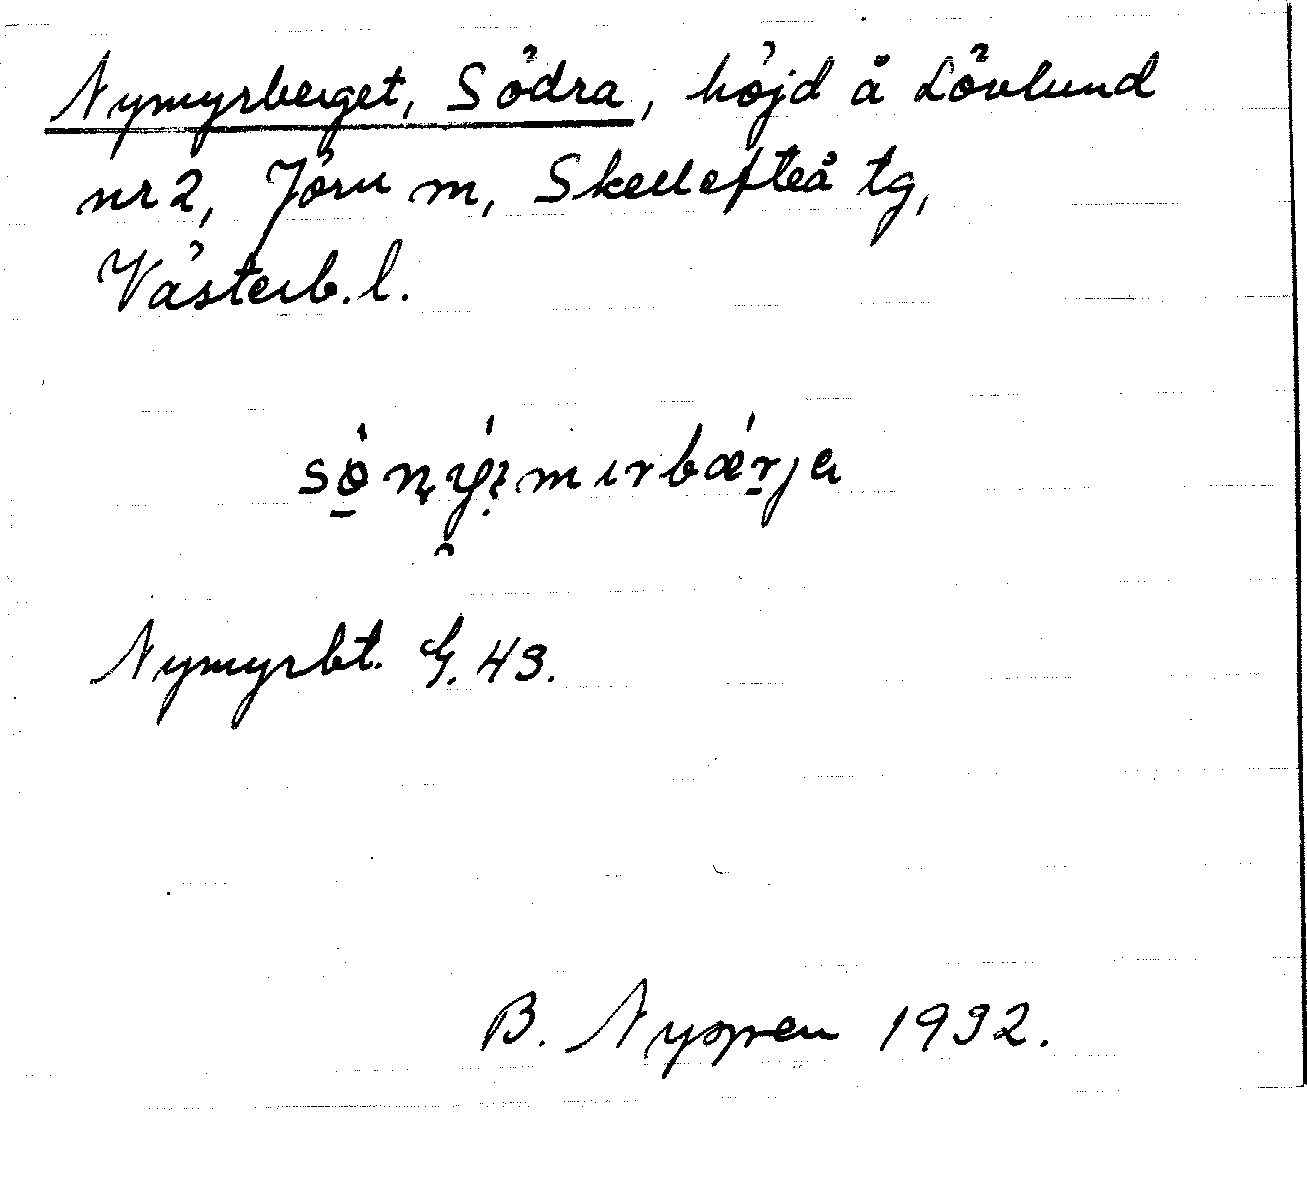 Nymyrberget, Södra, höjd å Lövlund
nr 2, Jörn m, Skellefteå tg,
Västerb. l.
Nymyrbt. G. 43.
B. Nyppen 1932.